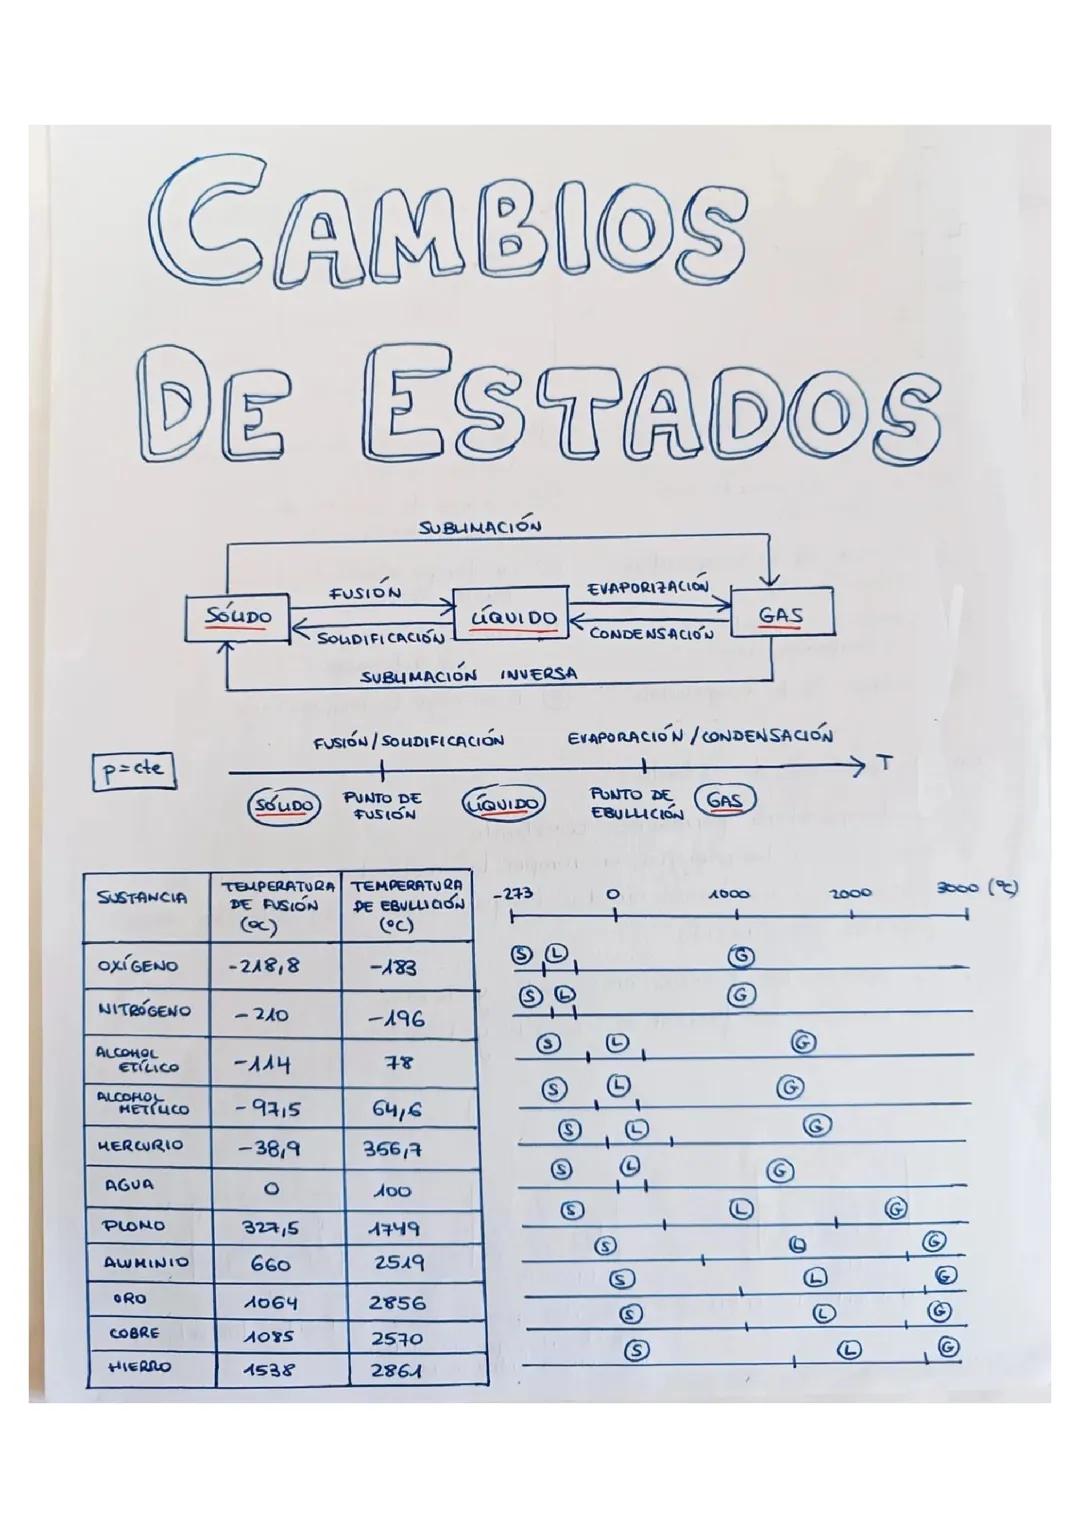 CAMBIOS
DE ESTADOS
SUBLIMACIÓN
SÓLIDO
FUSIÓN
SOLIDIFICACIÓN
LÍQUIDO
EVAPORIZACIÓN
CONDENSACIÓN
GAS
SUBLIMACIÓN INVERSA
FUSIÓN/SOLIDIFICACIÓN EVAPORACIÓN/CONDENSACIÓN
p=cte T
SÓLIDO PUNTO DE FUSIÓN LÍQUIDO PUNTO DE EBULLICIÓN GAS
SUSTANCIA TEMPERATURA DE FUSIÓN (ºC) TEMPERATURA DE EBULLICIÓN (ºC) -273 0 1000 2000 3000 (ºC)
OXÍGENO -218,8 -183 S L G
NITRÓGENO -210 -196 S L G
ALCOHOL ETÍLICO -114 78 S L G
ALCOHOL METÍLICO -97,5 64,6 S L G
MERCURIO -38,9 356,7 S L G
AGUA 0 100 S L G
PLOMO 327,5 1749 S L G
ALUMINIO 660 2519 S L G
ORO 1064 2856 S L G
COBRE 1085 2570 S L G
HIERRO 1538 2861 S L G